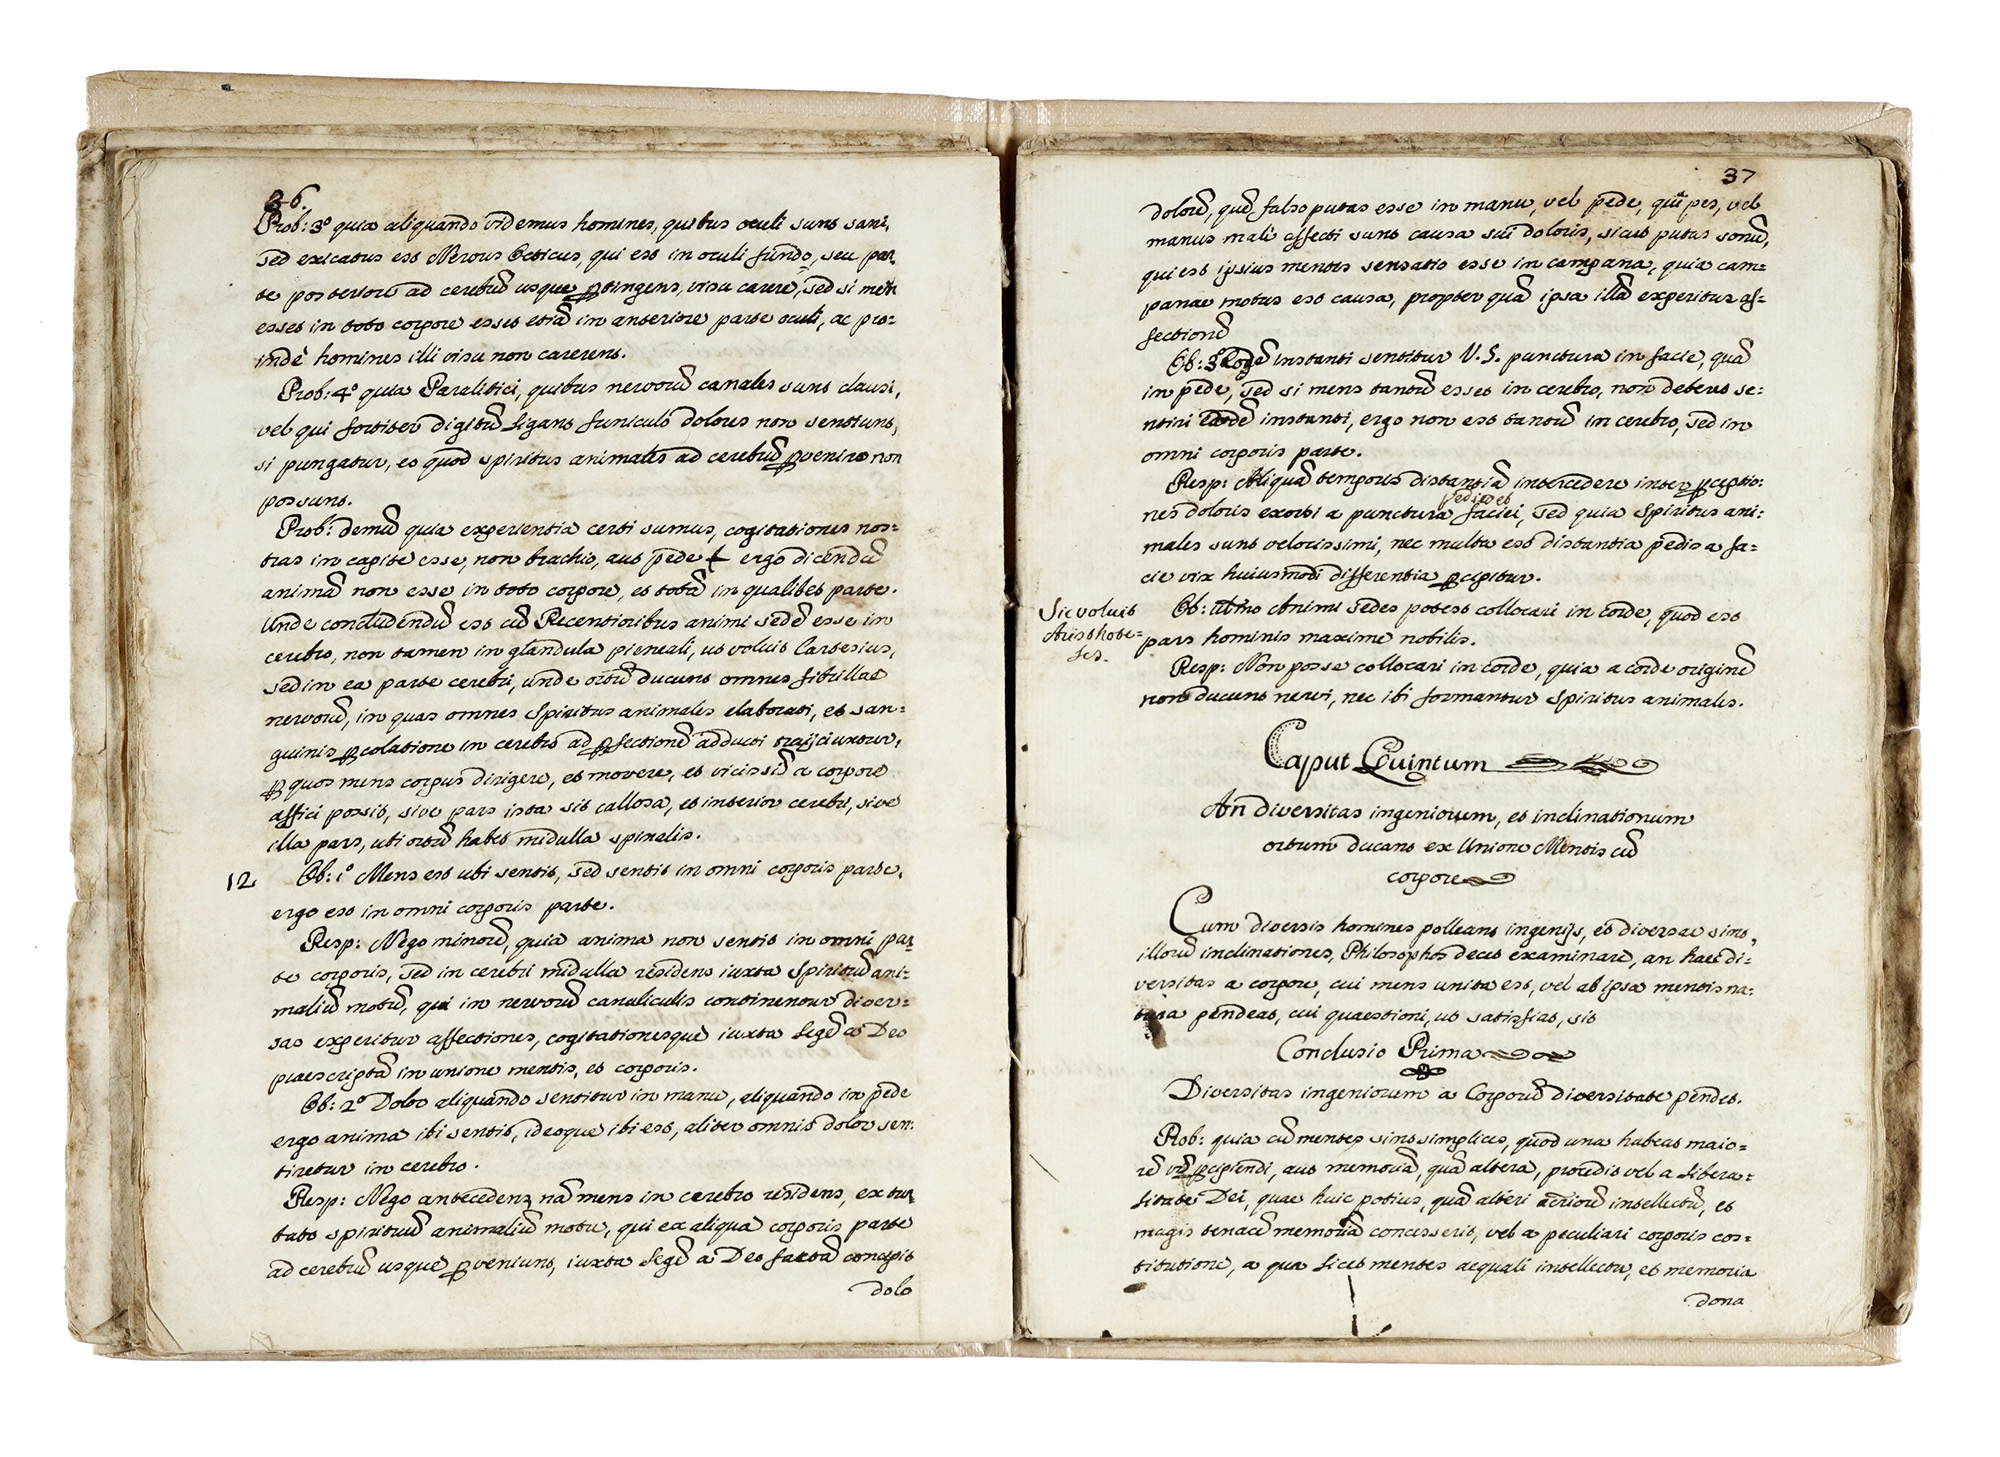 36.
Prob: 3º quia aliquando videmus homines, quibus oculi sunt sani,
sed exicatus est Nervus Octicus, qui est in oculi fundo, seu par
te posteriori ad cerebrũ usque ꝑtingens, visu carere, sed si mens
esset in toto corpore esset etiã in anteriore parte oculi, ac pro=
inde homines illi visu non carerent.
Prob: 4º quia Paralitici, quibus nervorũ canales sunt clausi,
vel qui fortiter digitũ ligant funiculo dolores non sentiunt,
si pungatur, eo quod spiritus animales ad cerebrũ ꝑvenire non
possunt.
Prob: demũ quia experientia certi sumus, cogitationes nos=
tras in capite esse, non brachio, aut pede ergo dicendũ
animã non esse in toto corpore, et totã in qualibet parte.
Unde concludendũ est cũ Recentioribus animi sedẽ esse in
cerebro, non tamen in glandula pieneali, ut voluit Cartesius,
sed in ea parte cerebri, unde ortũ ducunt omnes fibrillae
nervorũ, in quas omnes Spiritus animales elaborati, et san=
guinis ꝑcolatione in cerebro ad ꝑfectionẽ adducti traijciuntur,
ꝑ quos mens corpus dirigere, et movere, et vicissĩ a corpore
affici possit, sive pars ista sit callosa, et interior cerebri, sive
illa pars, ubi ortũ habet midulla spinalis.
12 Ob: 1º Mens est ubi sentit, sed sentit in omni corporis parte,
ergo est in omni corporis parte.
Resp: Nego minorẽ, quia anima non sentit in omni par
te corporis, sed in cerebri midulla residens iuxta Spirituũ ani=
maliũ motũ, qui in nervorũ canaliculis continentur diver=
sas experitur affectiones, cogitationesque iuxta legẽ a Deo
praescriptã in unione mentis, et corporis.
Ob: 2º Dolor aliquando sentitur in manu, aliquando in pede
ergo anima ibi sentit, ideoque ibi est, aliter omnis dolor sen:
tiretur in cerebro.
Resp: Nego antecedens, nã mens in cerebro residens, ex tur
bato spirituũ animaliũ motu, qui ex aliqua corporis parte
ad cerebrũ usque ꝑveniunt, iuxta legẽ a Deo factã concipit
dolo
37
dolorẽ, quẽ falso putat esse in manu, vel pede, quĩ pes, vel
manus malè affecti sunt causa sui doloris, sicut putat sonũ,
qui est ipsius mentis sensatio esse in campana, quia cam=
panae motus est causa, propter quã ipsa illã experitur af=
fectionẽ
Ob: 3º Eodẽ instanti sentitur V. S. punctura in facie, quã
in pede, sed si mens tantũ esset in cerebro, non deberet se=
ntiri eodẽ instanti, ergo non est tantũ in cerebro, sed in
omni corporis parte.
Resp: Aliquã temporis distantiã intercedere inter ꝑceptio:
pedis et
nes doloris exorti a punctura faciei, sed quia Spiritus ani:
males sunt velocissimi, nec multa est distantia pedis a fa=
cie vix huiusmodi differentia ꝑcipitur.
Sic voluit
Aristhote=
les.
Ob: ultimo Animi sedes potest collocari in corde, quod est
pars hominis maxime nobilis.
Resp: Non posse collocari in corde, quia a corde originẽ
non ducunt nervi, nec ibi formantur Spiritus animales.
Caput Quintum
An diversitas ingeniorum, et inclinationum
ortum ducant ex Unione Mentis cũ
corpore
Cum diversis homines polleant ingenijs, et diversae sint
illorũ inclinationes, Philosophos decet examinare, an haec di=
versitas a corpore, cui mens unita est, vel ab ipsa mentis na:
tura pendeat, cui quaestioni, ut satisfiat, sit
Conclusio Prima
Diversitas ingeniorum a Corporũ diversitate pendet.
Prob: quia cũ mentes sint simplices, quod una habeat maio=
rẽ vĩ ꝑcipiendi, aut memoriã, quã altera, procedit vel a libera=
litate Dei, quae huic potius, quã alteri acriorũ intellectũ, et
magis tenacẽ memoriã concesserit, vel a peculiari corporis cos=
titutione, a qua licet mentes aequali intellectu, et memoria
dona